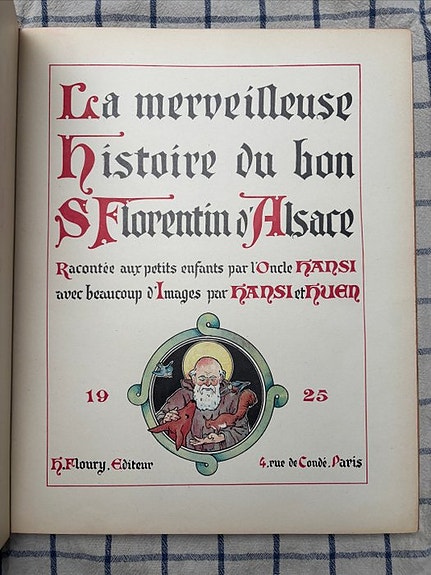 La merveilleuse
histoire du bon
S Florentin d'Alsace
Racontée aux petits enfants par l'Oncle HANSI
avec beaucoup d'Images par HANSI et HUEN
19 25
H. Floury. Editeur 4. rue de Condé. Paris